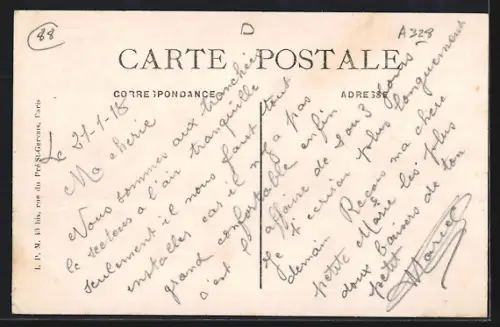 88
D
A328
CARTE POSTALE
CORRESPONDANCE
ADRESSE
L. P. M. 43 bis, rue du Pré-St-Gervais, Paris
Le 21-1-18
Ma chérie
Nous sommes aux tranchées
le secteur a l'air tranquille
seulement il nous faut tout
installer car il n'y a pas
grand confortable enfin
c'est l'affaire de 2 ou 3 jours
Je t'écrirai plus longuement
demain Reçois ma chère
petite Marie les plus
doux baisers de ton
petit
Marcel